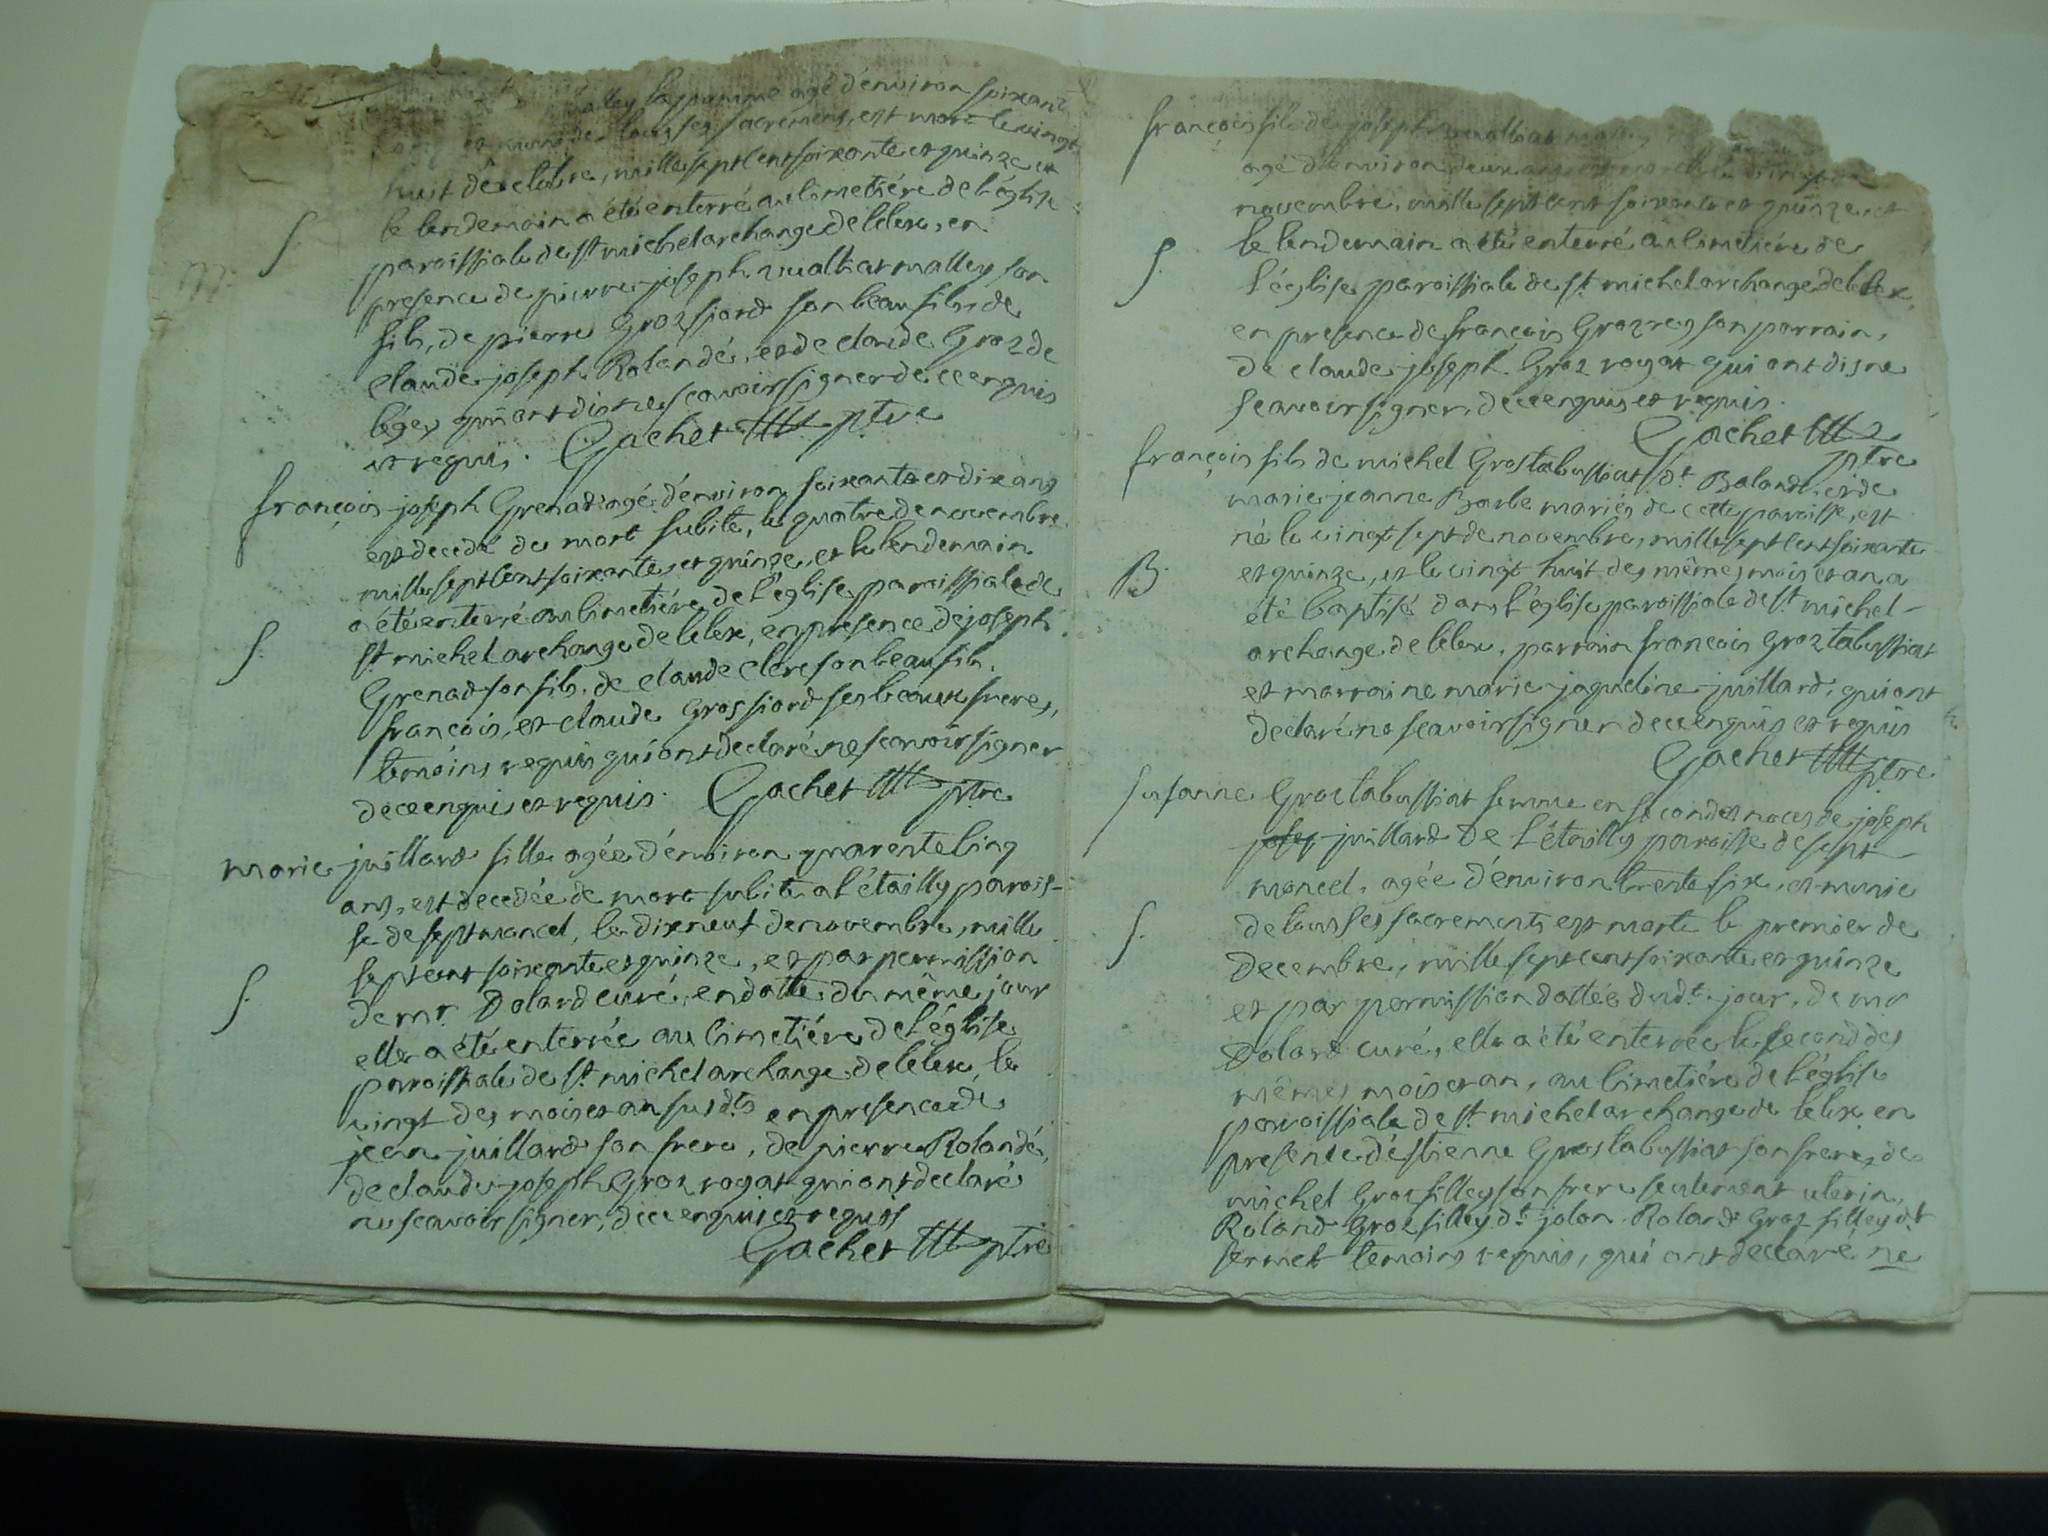 malley la pomme agé d'environ soixante
et muni de tous ses sacremens, est mort le vingt
huit d'octobre, mille sept cent soixante et quinze et
le lendemain a été enterré au cimetiére de l'église
S.
paroissiale de st michel archange de lelex, en
presence de pierre joseph vualliat malley son
fils, de pierre Grosfiord son beau fils de
claude joseph Rolandé, et de claude Groz de
léger qui ont dis ne scavoir signer de ce enquis
et requis. Gachet ptre
françois-joseph Grenard agé d'environ soixante et dix ans
est decedé de mort subite, le quatre de novembre
mille sept cent soixante et quinze, et le lendemain
a été enterré au cimetiére de l'église paroissiale de
S.
st michel archange de lelex, en presence de joseph
Grenard son fils, de claude clerc son beau fils,
françois, et claude Grosfiord ses beaux freres,
temoins requis qui ont declaré ne scavoir signer
de ce enquis et requis. Gachet ptre
marie juillard fille agée d'environ quarente cinq
ans, est decedée de mort subite a l'étailly parois-
se de septmoncel, le dixneuf de novembre, mille
sept cent soixante et quinze, et par permission
S.
de mr. Dolard curé, en datte du même jour
elle a été enterrée au cimetiére de l'église
paroissiale de st. michel archange de lelex, le
vingt des mois et an susdts en presence de
jean juillard son frere, de pierre Rolandé,
de claude-joseph Groz royat qui ont declaré
ne scavoir signer, de ce enquis et requis
Gachet ptre
françois fils de joseph vualliat malley
agé d'environ deux ans est mort le vingt
novembre, mille sept cent soixante et quinze, et
le lendemain a été enterré au cimetiére de
S.
l'église paroissiale de st michel archange de lelex,
en presence de françois Groz rey son parrain,
de claude joseph Groz royat qui ont dis ne
scavoir signer, de ce enquis et requis.
Gachet
ptre
françois fils de michel Grostabussiat dt. Baland, et de
marie-jeanne Barbe mariés de cette paroisse, est
né le vingt sept de novembre, mille sept cent soixante
B.
et quinze, et le vingt huit des mêmes mois et an a
été baptisé dans l'église paroissiale de st. michel-
archange de lelex, parrain françois Groz tabussiat
et marraine marie-jaqueline juillard, qui ont
declaré ne scavoir signer de ce enquis et requis
Gachet ptre
susanne Groztabussiat femme en secondes noces de joseph
juillard De l'étailly paroisse de sept-
moncel, agée d'environ trente six, et munie
S.
de tous ses sacrements est morte le premier de
Decembre, mille sept cent soixante et quinze
et par permission dattée dudt. jour, de mr
Dolard curé, elle a été enterrée le second des
mêmes mois et an, au cimetiére de l'église
paroissiale de st michel archange de lelex en
presence d'étienne Groztabussiat son frere, de
michel Groz filley son frere seulement uterin,
Roland Groz filley dt. jolon Roland Groz filley dt
fermet temoins requis, qui ont declaré ne